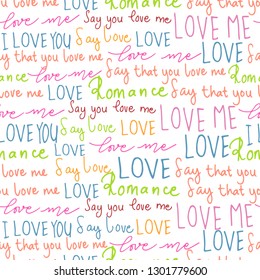 Say you love me LOVE ME
love me LOVE LOVE
I LOVE YOU Say Love Say that you
Say that you love me LOVE Romance
love me LOVE Say that you
Romance Say you love me LOVE ME
I LOVE YOU Say Love LOVE LOVE
Say that you love me love me Say that you
love me LOVE Romance
you love me LOVE Romance Say that you
Romance Say you love me LOVE ME
love me LOVE LOVE
I LOVE YOU Say Love
Say that you love me LOVE Say that you
www.shutterstock.com · 1301779600